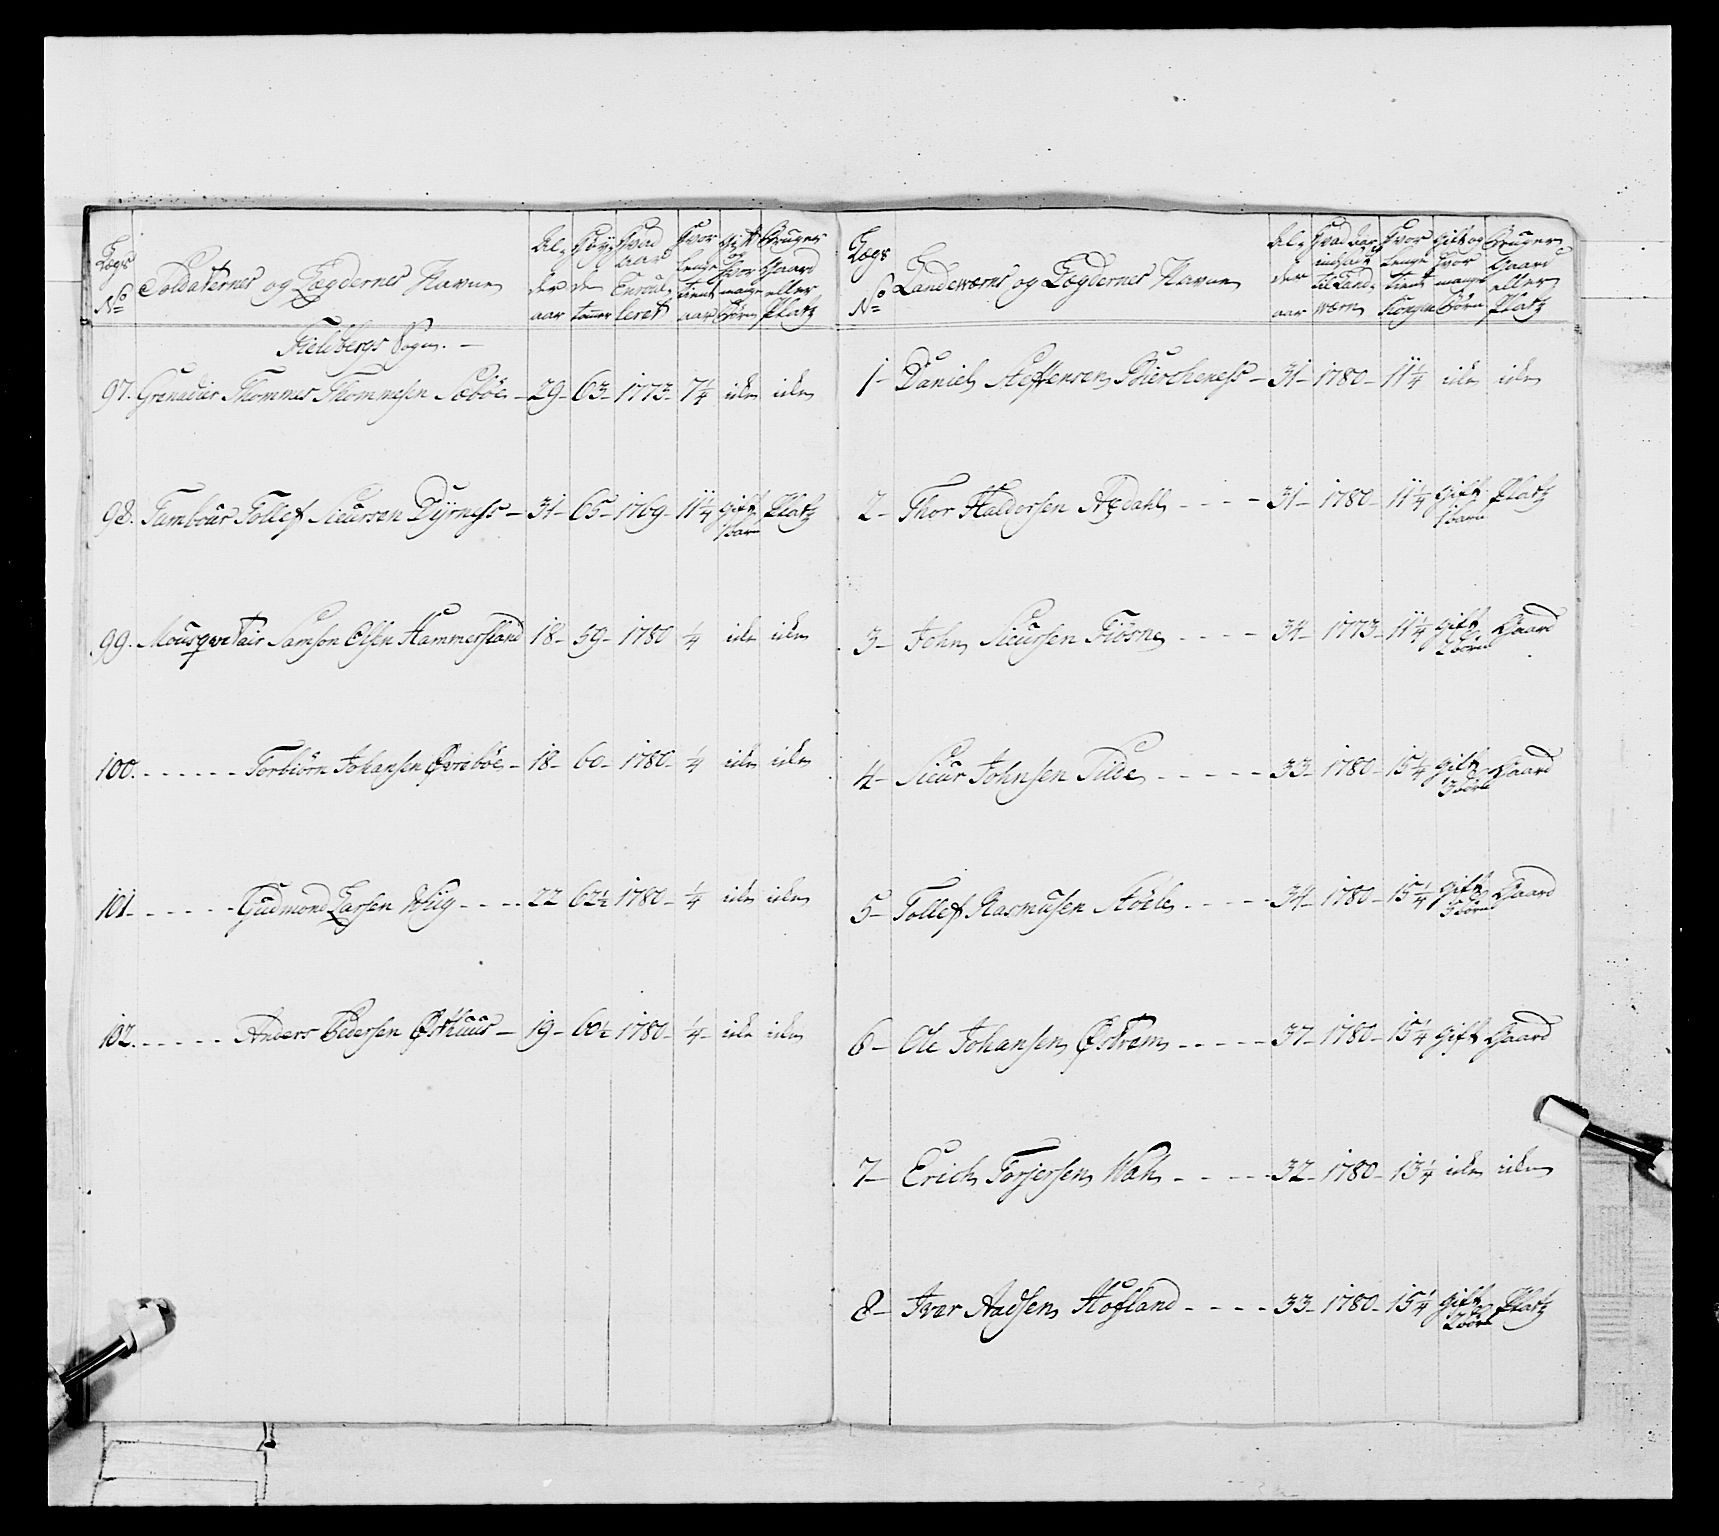 Lægs No
Soldaternes og Lægdernes Navne
Alder aar
Høyden tomer
Hvad aar Enroulleret
Hvor lenge tient aar
gift og hvor mange Børn
Bruger Gaard eller Platz
Fieldbergs Sogn. —
97. Grenadier Thommes Thommesen Sæbøe – 29 – 63 – 1773 – 7 1/4 iden iden
98. Tambour Tollef Siursen Dyrness – 31 – 65 – 1769 – 11 1/4 gift 1 barn Platz
99. Mousquetair Samson Olsen Hammersland 18 – 59 – 1780 1/4 iden iden
100. - - - - - - Torbiørn Johansen Øvrebøe – 18 – 60 – 1780 – 1/4 iden iden
101 - - - - - - Gudmond Larsen Wiig - - - - 22 62 1/2 1780 – 1/4 iden iden
102. - - - - - Anders Pedersen Østhuus – 19 – 60 1/2 1780 – 1/4 – iden iden
Lægs No
Landeværns og Lægdernes Navne
Alder aar
Hvad aar indsadt til Landværn
Hvor lenge tient Kongen
gift og hvor mange Børn
Bruger Gaard eller Platz
1 – Daniel Steffensen Bircheness – 31 – 1780 – 11 1/4 iden iden
2 – Thor Haldorsen Ædahl - - - - 31 – 1780 – 11 1/4 gift 1 barn Platz
3 – John Siursen Fiøsne - - - - 34 – 1773 – 11 1/4 gift 2 børn Gaard
4 – Siur Johnsen Tilde - - - - - 33 – 1780 – 15 1/4 gift 3 børn Gaard
5 – Tollef Rasmusen Støele - - - - - 34 – 1780 – 15 1/4 gift 3 børn Gaard
6 – Ole Johansen Østrem - - - - - 37 – 1780 – 15 1/4 gift Gaard
7 – Erich Torjersen - - - - 32 – 1780 – 13 1/4 iden iden
8 – Iver Aadsen Hofland - - - - 33 – 1780 – 15 1/4 gift 2 børn Platz